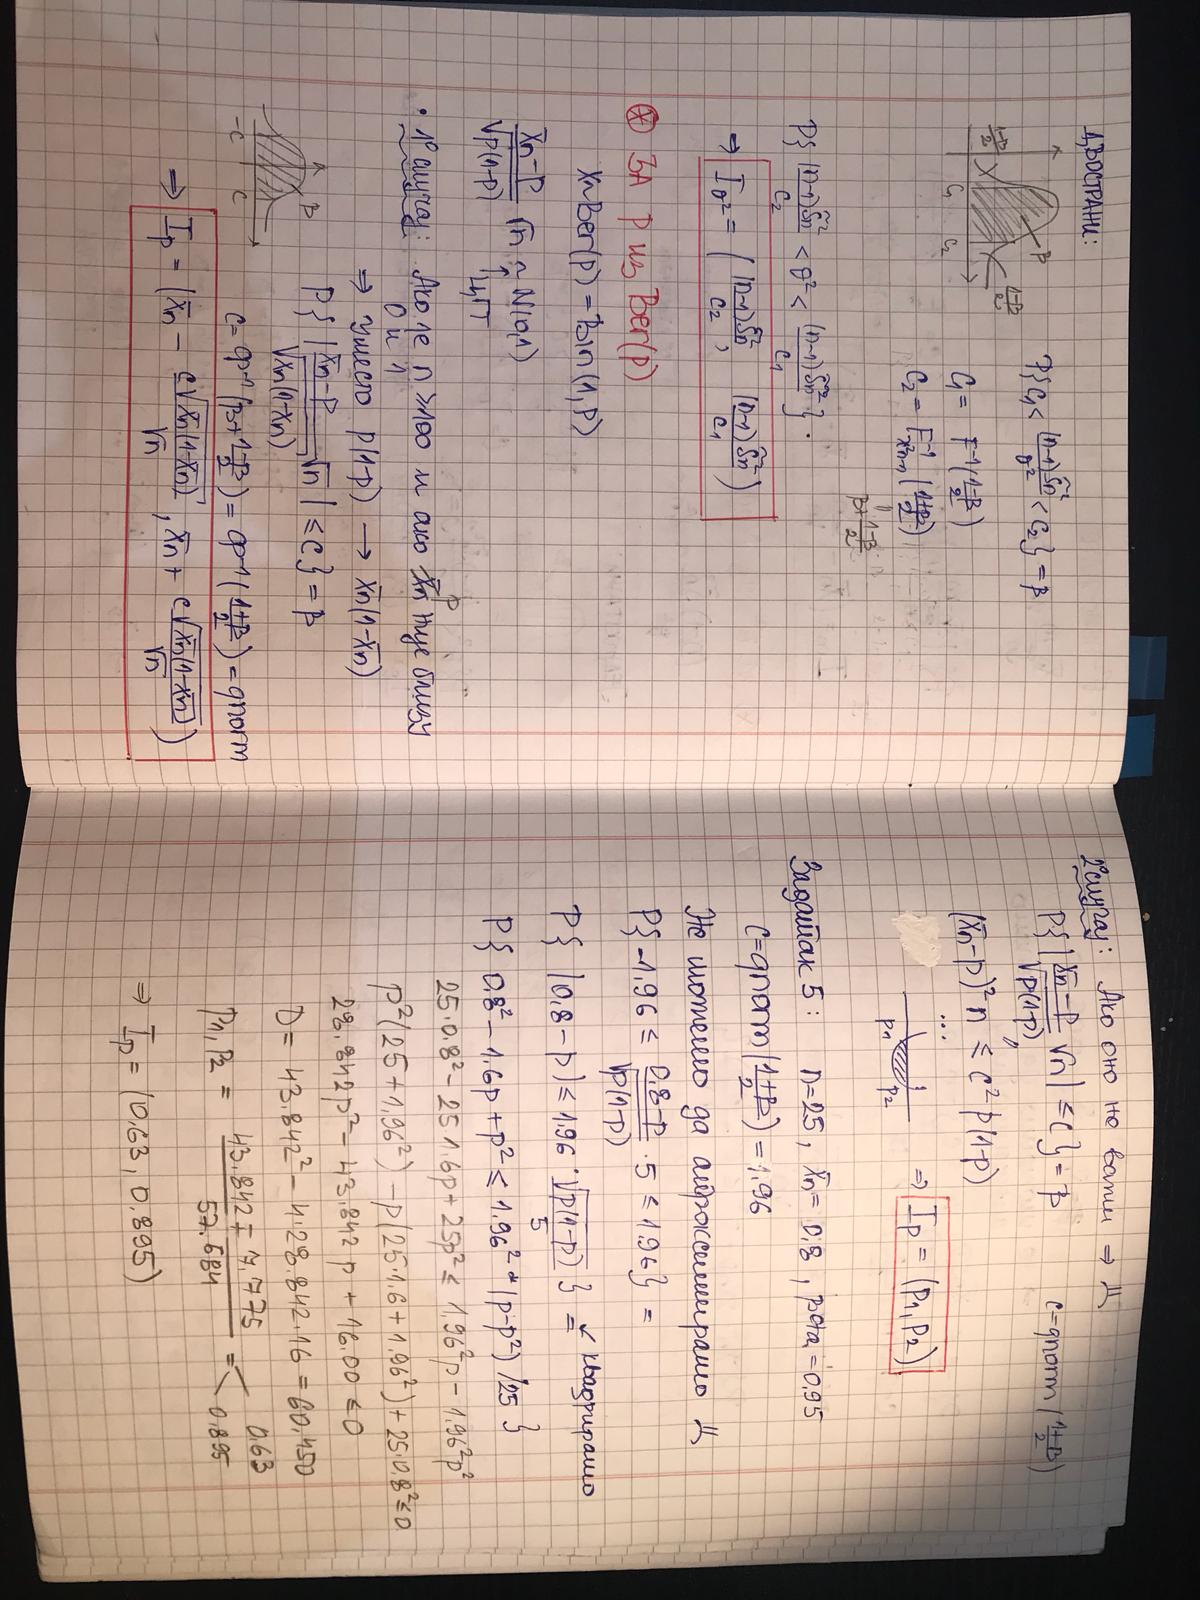 ДВОСТРАНИ:
P{C₁ < (n-1)S̃n²/σ² < C₂} = β
1-β/2 β 1-β/2
C₁ C₂
C₁ = F⁻¹(1-β/2)
C₂ = F⁻¹χ²n-1(1+β/2)
β+1-β/2
P{(n-1)S̃n²/C₂ < σ² < (n-1)S̃n²/C₁}.
⇒ Iσ² = ((n-1)S̃n²/C₂, (n-1)S̃n²/C₁)
* ЗА p из Ber(p)
X~Ber(p) = Bin(1,p)
X̄n-p/√p(1-p) √n ~ N(0,1)
ЦГТ
• 1° случај: Ако је n>100 и ако X̄n није близу
0 и 1
⇒ уместо p(1-p) → X̄n(1-X̄n)
P{|X̄n-p/√X̄n(1-X̄n) √n| ≤ C} = β
β
-C C
C = φ⁻¹(β+1-β/2) = φ⁻¹(1+β/2) = qnorm
⇒ Ip = (X̄n - C√X̄n(1-X̄n)/√n, X̄n + C√X̄n(1-X̄n)/√n)
2° случај: Ако оно не важи ⇒
P{|X̄n-p/√p(1-p) √n| ≤ C} = β C=qnorm(1+β/2)
(X̄n-p)²n ≤ C²p(1-p)
...
p₁ p₂ ⇒ Ip = (p₁, p₂)
Задатак 5: n=25, X̄n = 0.8, β=0.95
C=qnorm(1+β/2) = 1.96
Не можемо да апроксимирамо
P{-1.96 ≤ 0.8-p/√p(1-p) · 5 ≤ 1.96} =
P{|0.8-p| ≤ 1.96·√p(1-p)/5} = ↙ квадрирамо
P{0.8² - 1.6p + p² ≤ 1.96² * (p-p²)/25}
25·0.8² - 25·1.6p + 25p² ≤ 1.96²p - 1.96²p²
p²(25+1.96²) - p(25·1.6+1.96²) + 25·0.8² ≤ 0
28.842p² - 43.842p + 16.00 ≤ 0
D = 43.842² - 4·28.842·16 = 60.450
p₁,p₂ = 43.842 ∓ 7.775/57.684 = < 0.63
0.895
⇒ Ip = (0.63, 0.895)